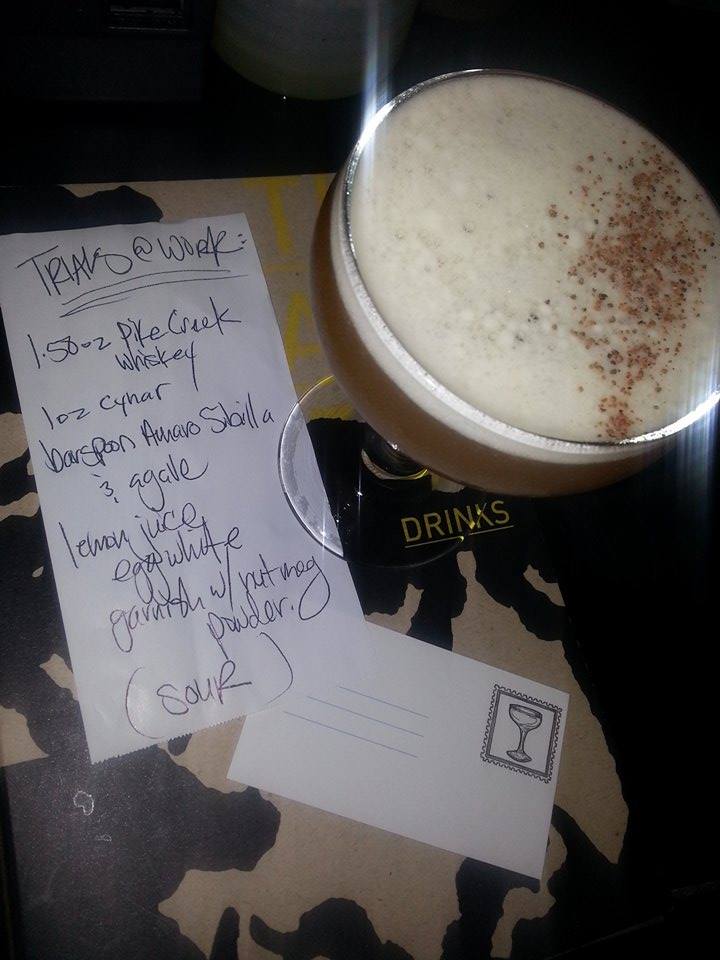 TRIALS @ WORK:
1.50oz Pike Creek
whiskey
1oz cynar
barspoon Amaro Sibilla
& agave
lemon juice
egg white
garnish w/ nutmeg
powder.
(SOUR)
DRINKS